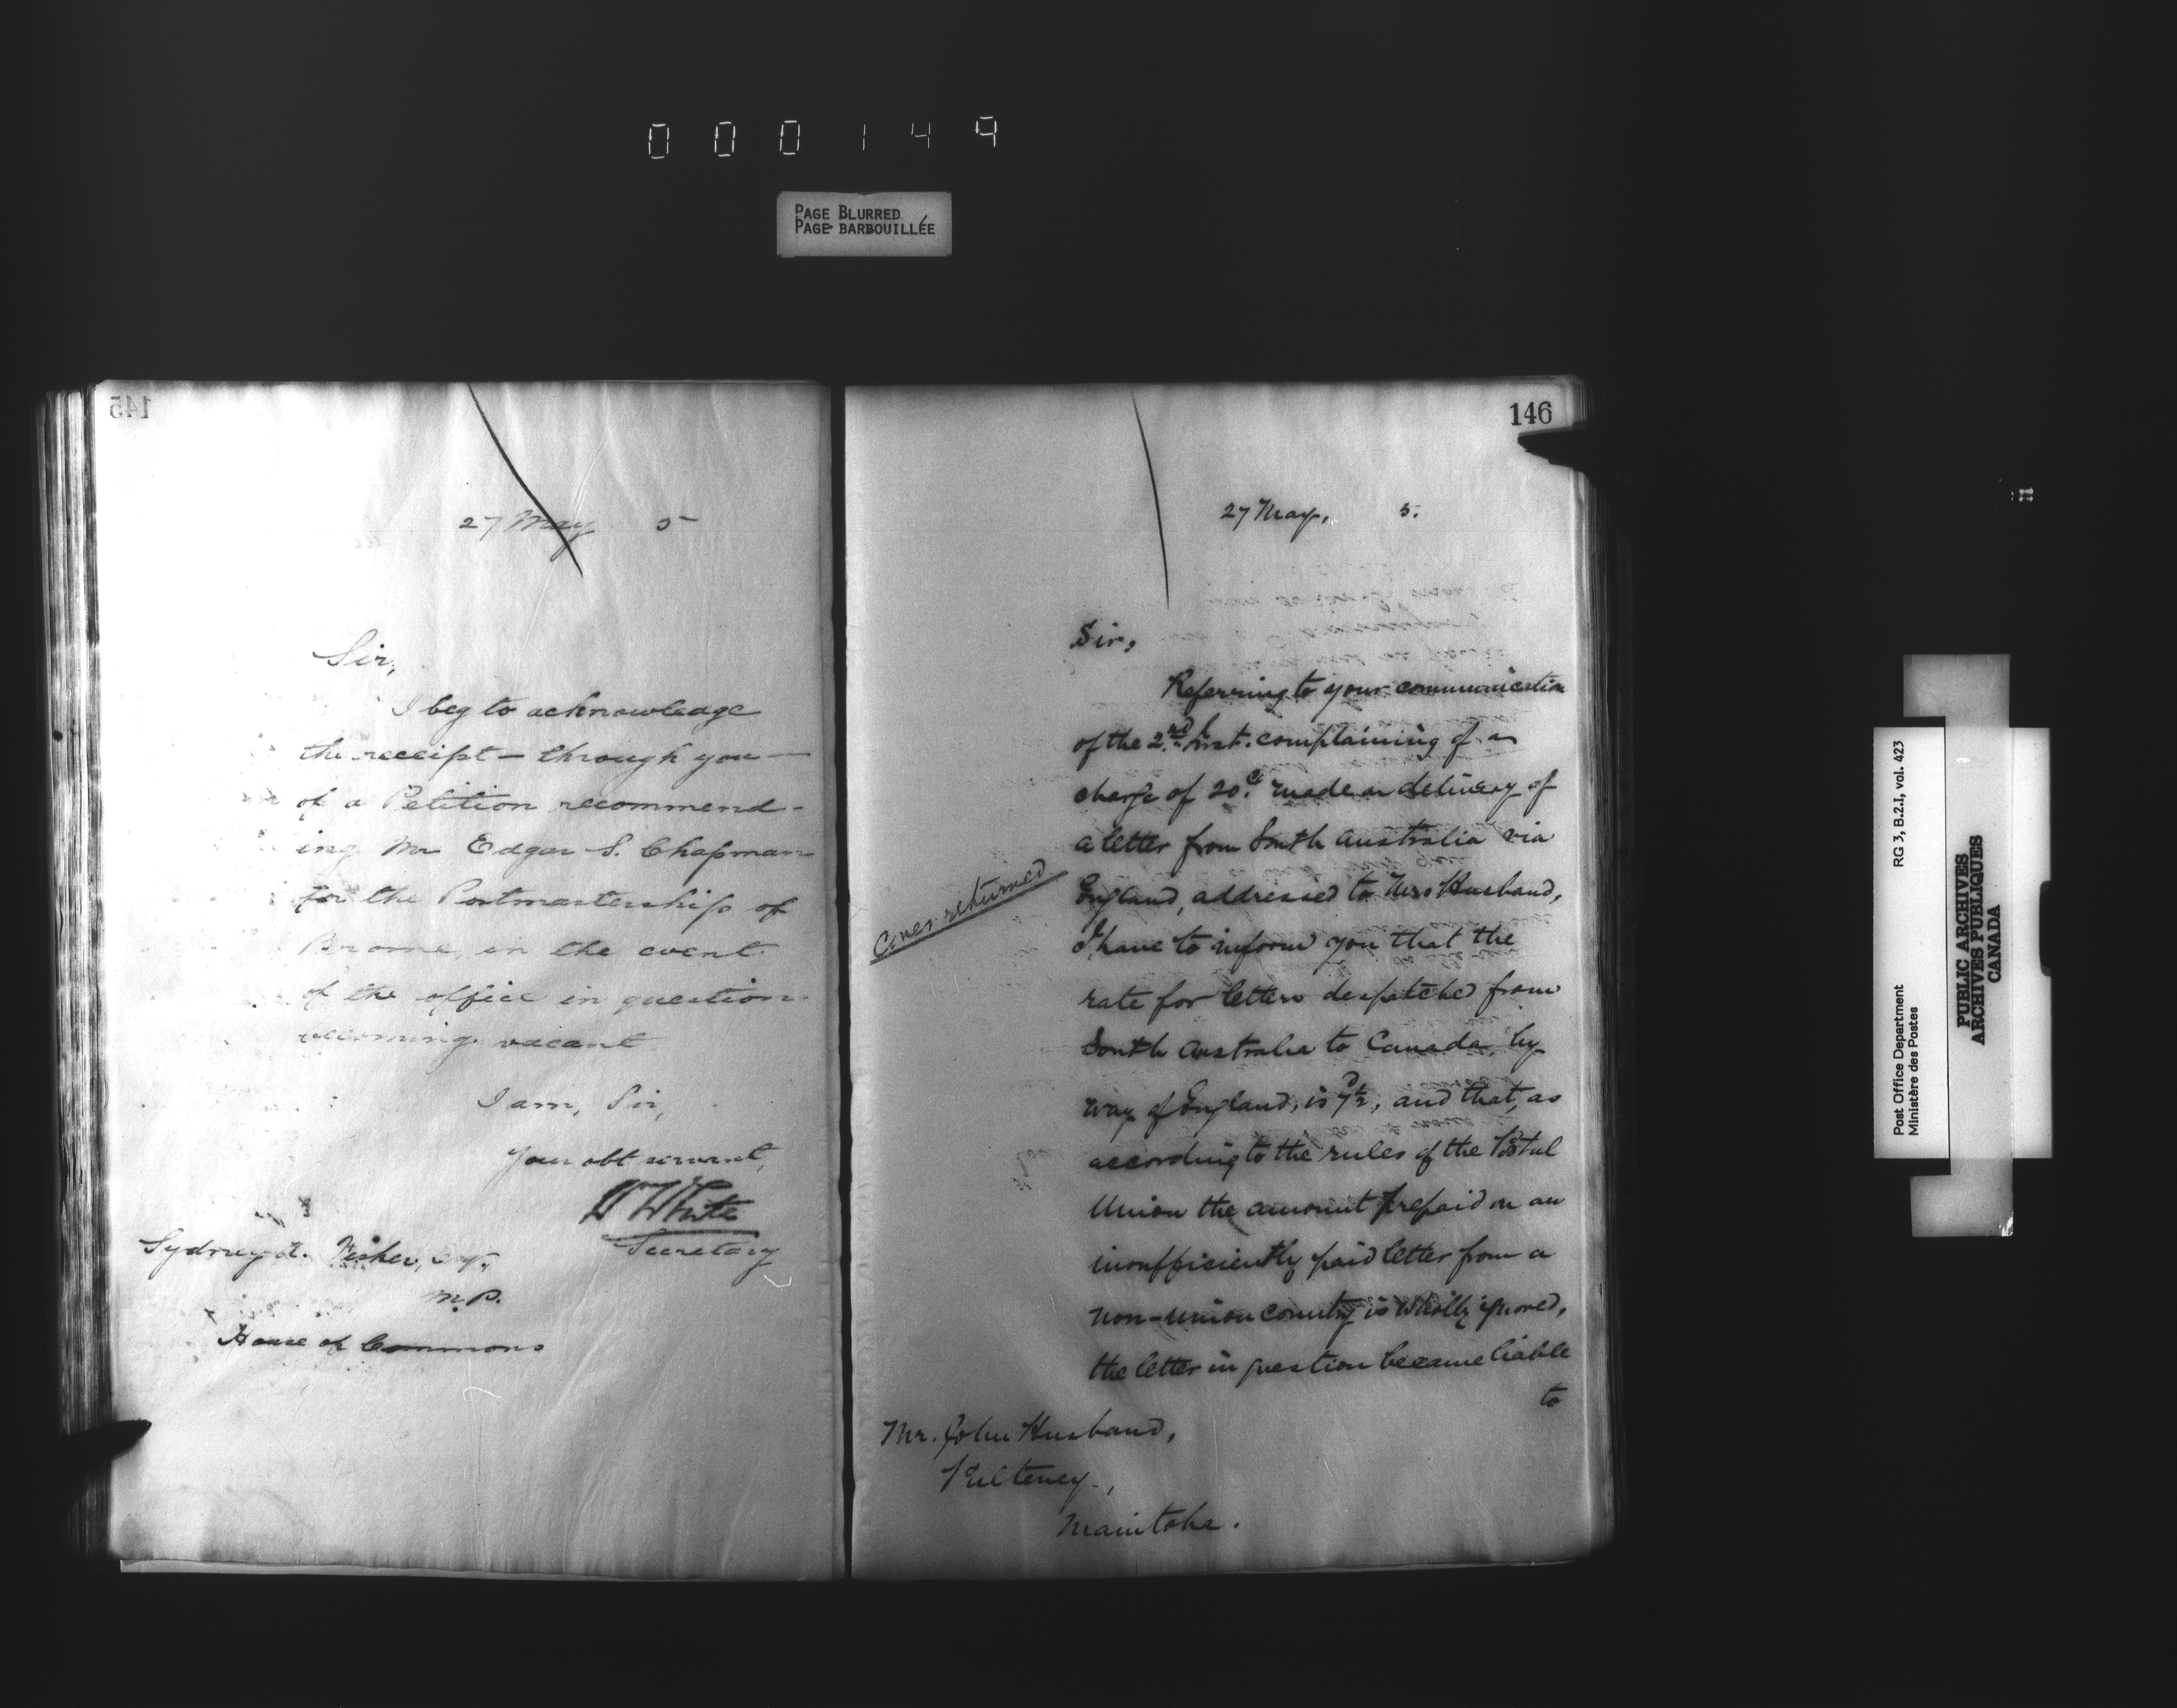 000149
PAGE BLURRED
PAGE BARBOUILLÉE
145
27 May 5
Sir,
I beg to acknowledge
the receipt — through you —
of a Petition recommend-
ing Mr Edgar S. Chapman
for the Postmastership of
Brome, in the event
of the office in question
becoming vacant
I am, Sir,
Your obt servant,
W White
Secretary
Sydney A. Fisher, Esq.,
M.P.
House of Commons
146
27 May, 5.
Sir,
Referring to your communication
of the 2nd inst. complaining of a
charge of 20c. made on delivery of
a letter from South Australia via
England, addressed to Mrs Husband,
I have to inform you that the
rate for letters despatched from
South Australia to Canada, by
way of England, is 7½d, and that, as
according to the rules of the Postal
Union the amount prepaid on an
insufficiently paid letter from a
non-union country is wholly ignored,
the letter in question became liable
to
Cover returned
Mr. John Husband,
Pulteney,
Manitoba.
RG 3, B.2.1, vol. 423
Post Office Department
Ministère des Postes
PUBLIC ARCHIVES
ARCHIVES PUBLIQUES
CANADA